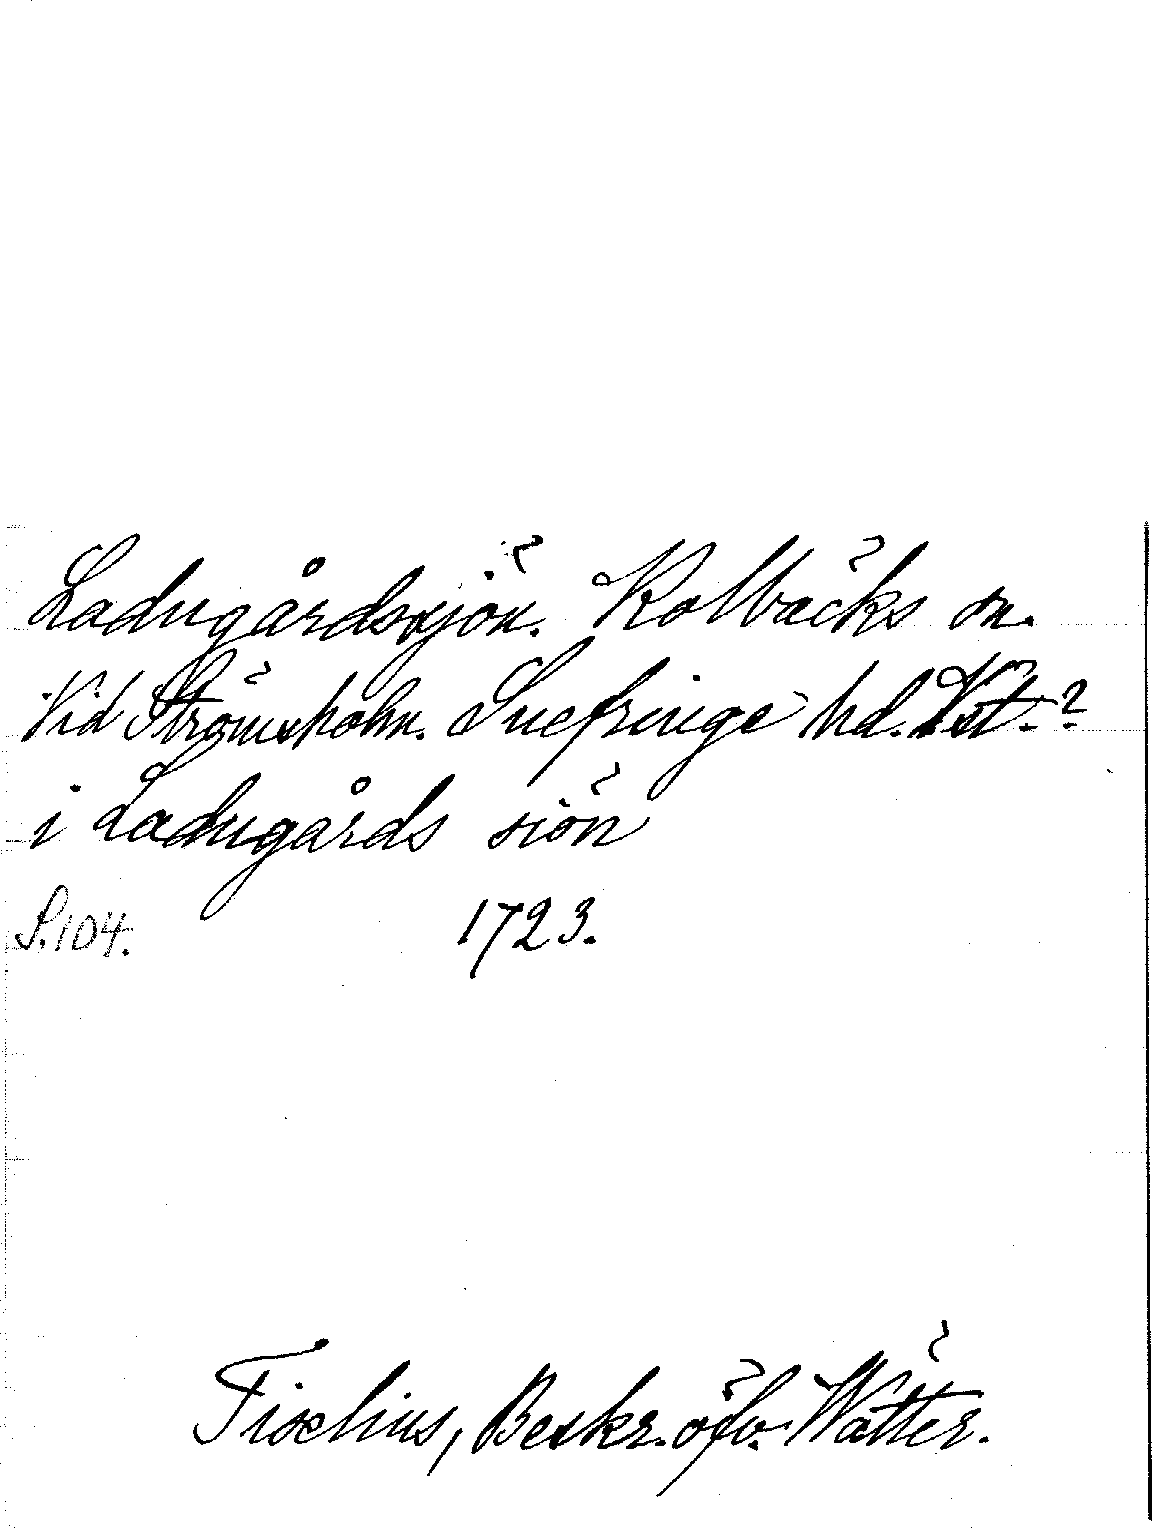 Ladugårdssjön. Kolbäcks sn.
Vid Strömsholm. Snefringe hd. Vst.?
i Ladugårds siön
S. 104. 1723.
Tiselius, Beskr. öfv. Wätter.